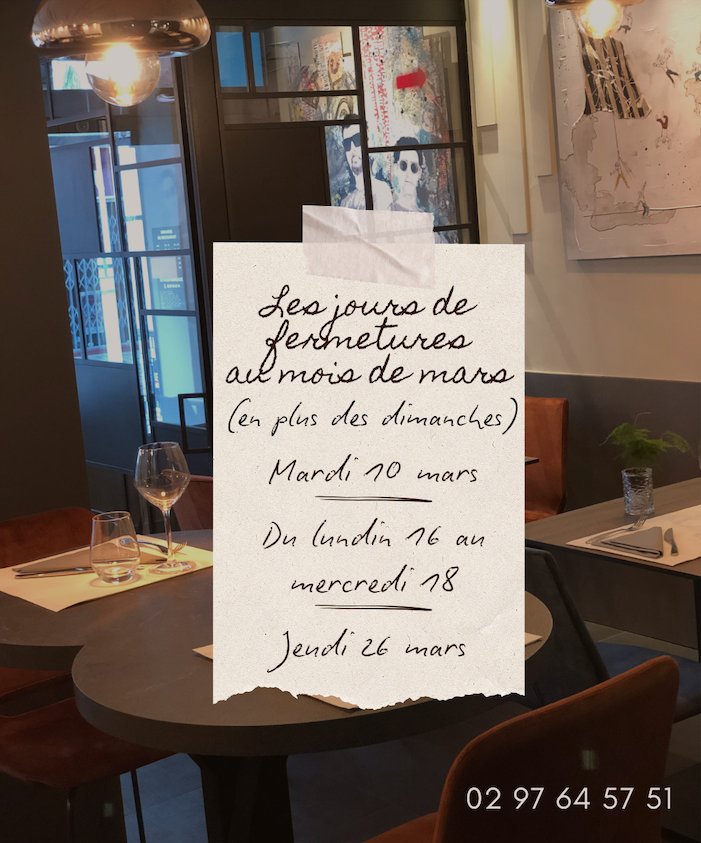 Les jours de
fermetures
au mois de mars
(en plus des dimanches)
Mardi 10 mars
Du lundin 16 au
mercredi 18
Jeudi 26 mars
02 97 64 57 51